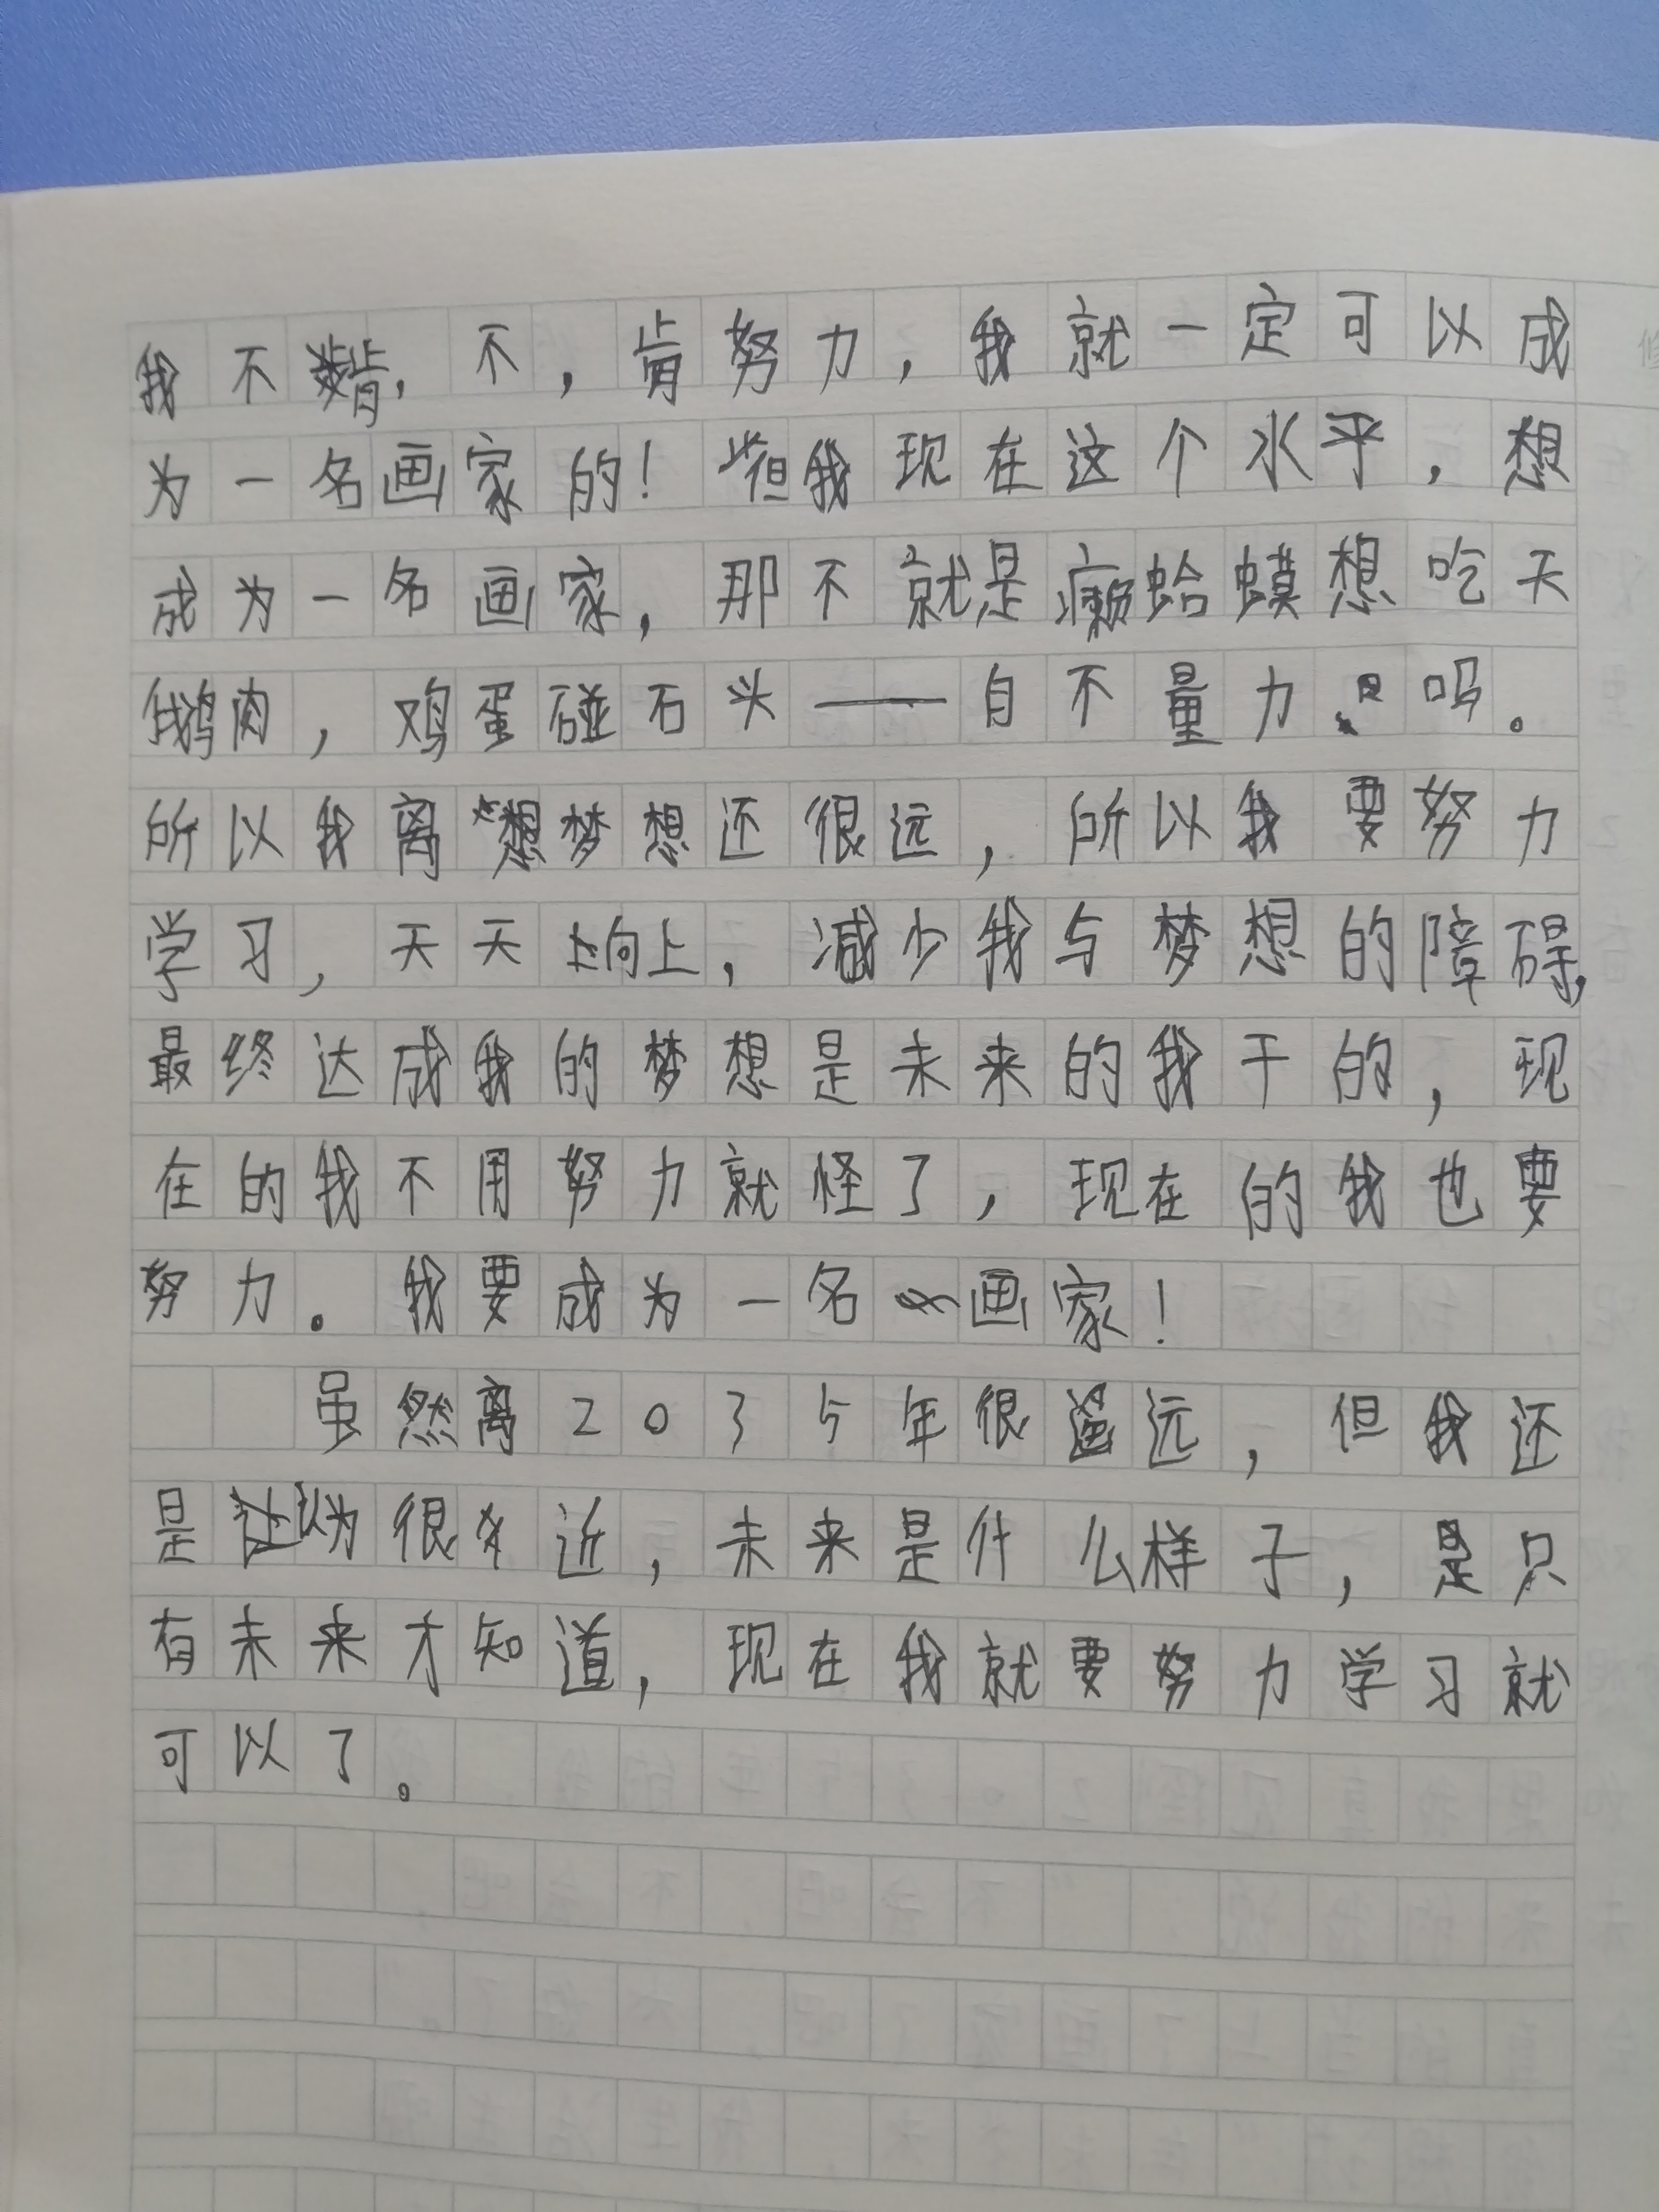 我不肯，不，肯努力，我就一定可以成
为一名画家的！但我现在这个水平，想
成为一名画家，那不就是癞蛤蟆想吃天
鹅肉，鸡蛋碰石头——自不量力吗。
所以我离梦想还很远，所以我要努力
学习，天天向上，减少我与梦想的障碍，
最终达成我的梦想是未来的我干的，现
在的我不用努力就怪了，现在的我也要
努力。我要成为一名画家！
虽然离2035年很遥远，但我还
是认为很近，未来是什么样子，是只
有未来才知道，现在我就要努力学习就
可以了。